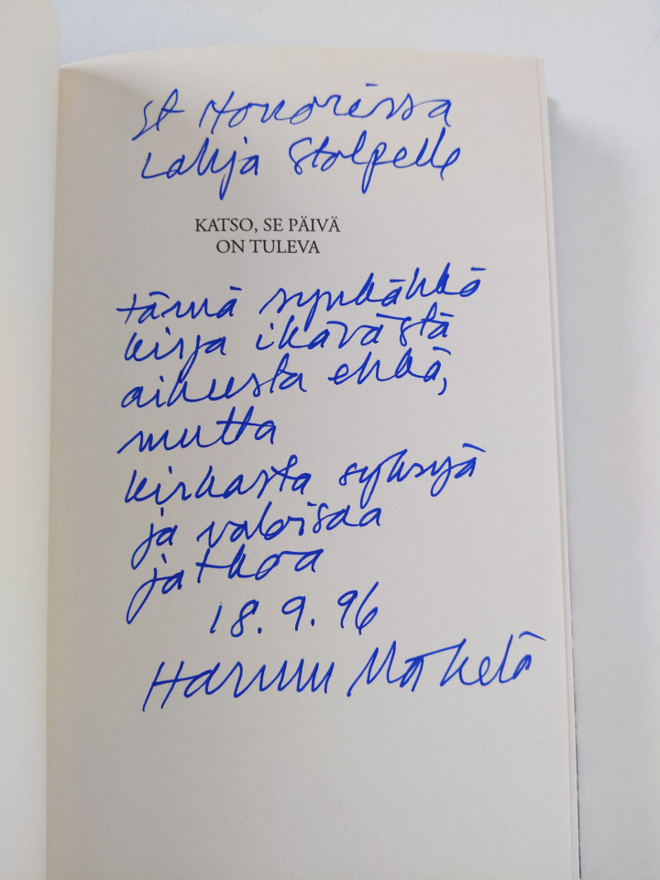 St Honoréssa
Lahja Stolpelle
KATSO, SE PÄIVÄ
ON TULEVA
tämä synkähkö
kirja ikävästä
aiheesta ehkä,
mutta
kirkasta syksyä
ja valoisaa
jatkoa
18.9.96
Hannu Mäkelä